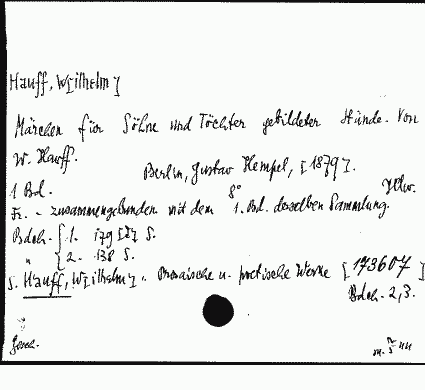 Hauff, W[ilhelm]
Märchen für Söhne und Töchter gebildeter Stände. Von
W. Hauff.
Berlin, Gustav Hempel, [1879].
1 Bd. 8°
- zusammengebunden mit dem 1. Bd. derselben Sammlung.
Bdch. 1. 179 S.
" 2. 138 S.
s. Hauff, W[ilhelm]. Prosaische u. poetische Werke [173607]
Bdch. 2, 3.
Gesch.